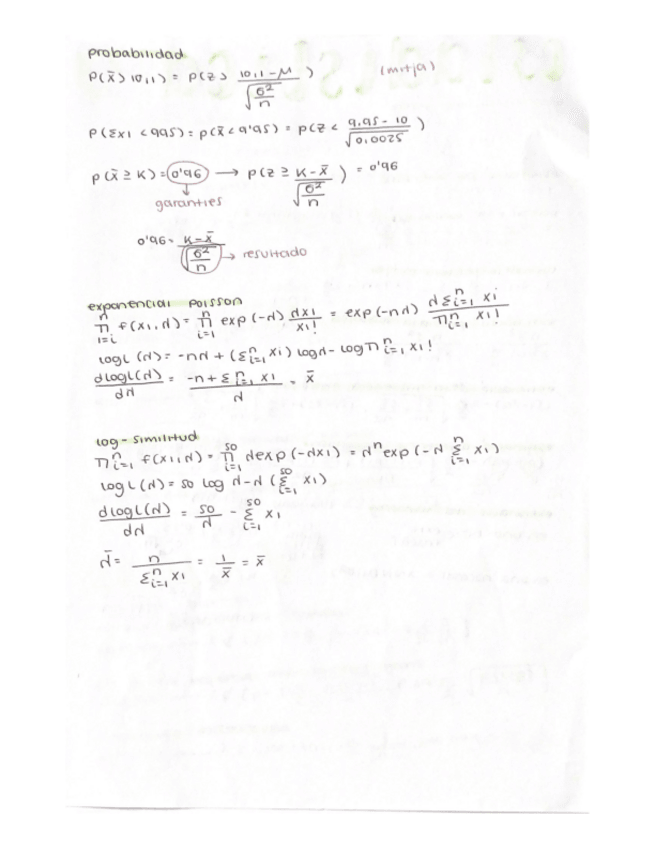 probabilidad
P(x̄ > 10,1) = P(z > (10,1 - μ) / √(σ²/n)) (mitja)
P(Σxi < 995) = P(x̄ < 9'95) = P(z < (9.95 - 10) / √0.0025)
P(x̄ ≥ K) = 0'96 → P(z ≥ (K - x̄) / √(σ²/n)) = 0'96
garanties
0'96 = (K - x̄) / √(σ²/n) → resultado
exponencial poisson
∏ⁿᵢ₌ᵢ f(xi, λ) = ∏ⁿᵢ₌₁ exp(-λ) λxi / xi! = exp(-nλ) λΣⁿᵢ₌₁ xi / ∏ⁿᵢ₌₁ xi!
logL(λ) = -nλ + (Σⁿᵢ₌₁ xi) logλ - log∏ⁿᵢ₌₁ xi!
dlogL(λ) / dλ = (-n + Σⁿᵢ₌₁ xi) / λ = x̄
log-similitud
∏ⁿᵢ₌₁ f(xi, λ) = ∏⁵⁰ᵢ₌₁ λexp(-λxi) = λⁿ exp(-λ Σⁿᵢ₌₁ xi)
logL(λ) = 50 log λ - λ (Σ⁵⁰ᵢ₌₁ xi)
dlogL(λ) / dλ = 50/λ - Σ⁵⁰ᵢ₌₁ xi
λ̄ = n / Σⁿᵢ₌₁ xi = 1/x̄ = x̄